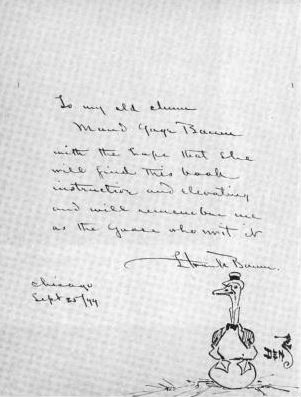 To my old chum
Maud Gage Baum
with the hope that she
will find this book
instructive and elevating
and will remember me
as the Goose who writ it
L Frank Baum.
Chicago
Sept 25/99
DEN